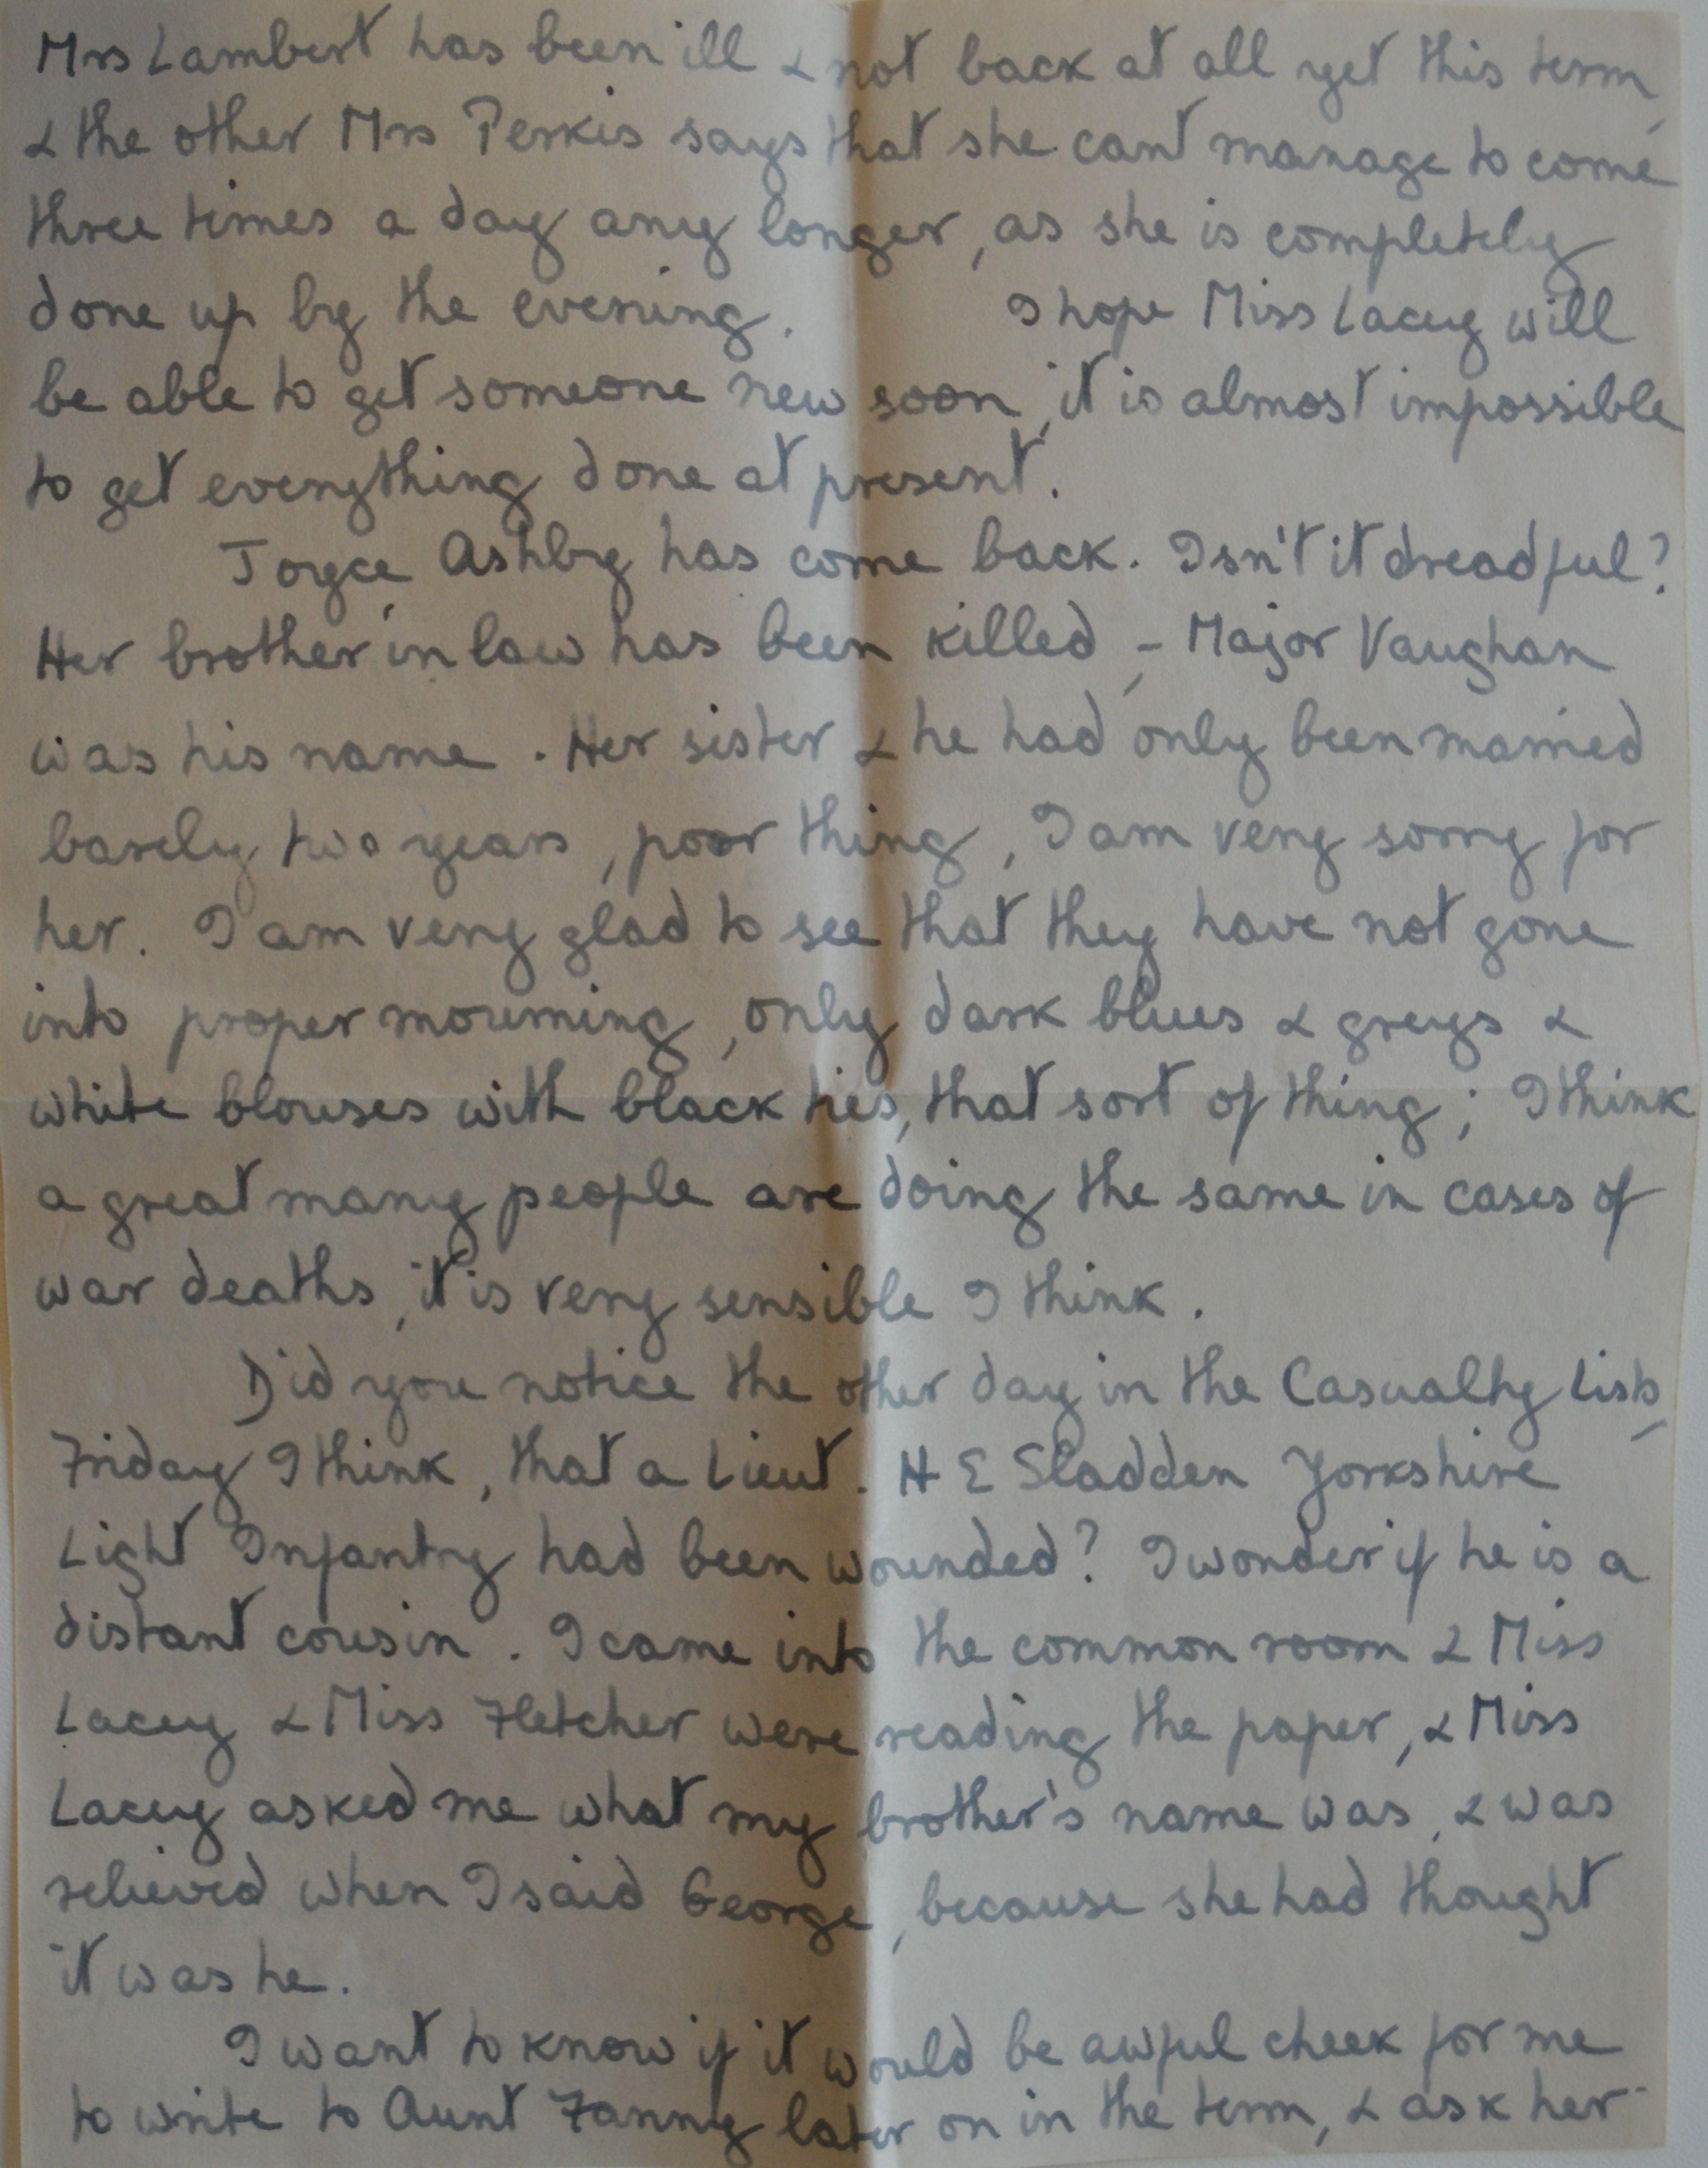 Mrs Lambert has been ill & not back at all yet this term,
& the other Mrs Perkis says that she cant manage to come
three times a day any longer, as she is completely
done up by the evening. I hope Miss Lacey will
be able to get someone new soon, it is almost impossible
to get everything done at present.
Joyce Ashby has come back. Isn't it dreadful?
Her brother in law has been killed, - Major Vaughan
was his name. Her sister & he had only been married
barely two years, poor thing, I am very sorry for
her. I am very glad to see that they have not gone
into proper mourning, only dark blues & greys &
white blouses with black ties, that sort of thing; I think
a great many people are doing the same in cases of
war deaths, it is very sensible I think.
Did you notice the other day in the Casualty Lists,
Friday I think, that a Lieut. H E Sladden Yorkshire
Light Infantry had been wounded? I wonder if he is a
distant cousin. I came into the common room & Miss
Lacey & Miss Fletcher were reading the paper, & Miss
Lacey asked me what my brother's name was, & was
relieved when I said George, because she had thought
it was he.
I want to know if it would be awful cheek for me
to write to Aunt Fanny later on in the term, & ask her